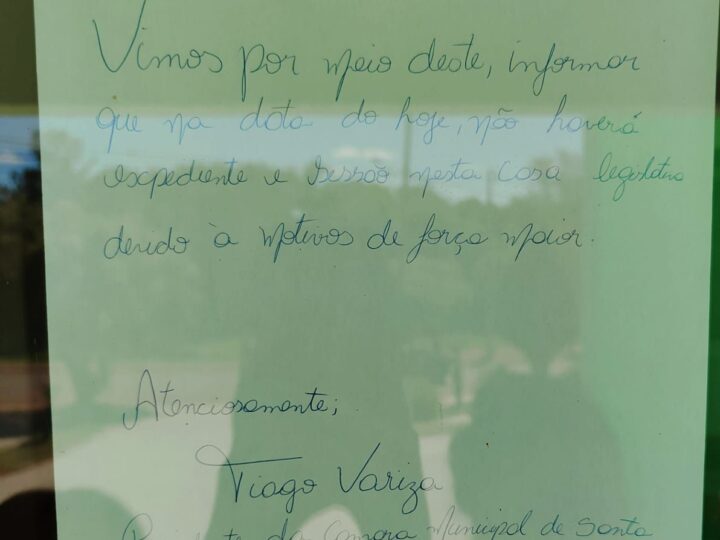 Vimos por meio deste, informar
que na data do hoje, não haverá
expediente e sessão nesta casa legislativa
devido à motivos de força maior.
Atenciosamente;
Tiago Variza
Presidente da Camara Municipal de Santa